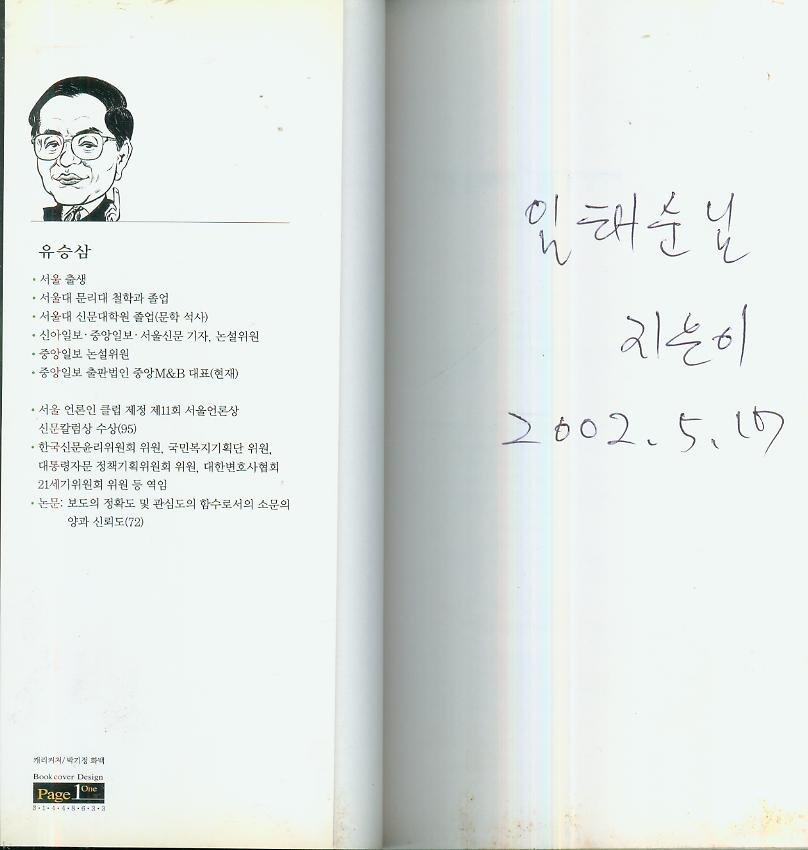 유승삼
• 서울 출생
• 서울대 문리대 철학과 졸업
• 서울대 신문대학원 졸업(문학 석사)
• 신아일보·중앙일보·서울신문 기자, 논설위원
• 중앙일보 논설위원
• 중앙일보 출판법인 중앙M&B 대표(현재)
• 서울 언론인 클럽 제정 제11회 서울언론상
신문칼럼상 수상(95)
• 한국신문윤리위원회 위원, 국민복지기획단 위원,
대통령자문 정책기획위원회 위원, 대한변호사협회
21세기위원회 위원 등 역임
• 논문: 보도의 정확도 및 관심도의 함수로서의 소문의
양과 신뢰도(72)
캐리커처/박기정 화백
Bookcover Design
Page 1 One
3·1·4·4·8·6·3·3
임태순님
지은이
2002. 5. 17